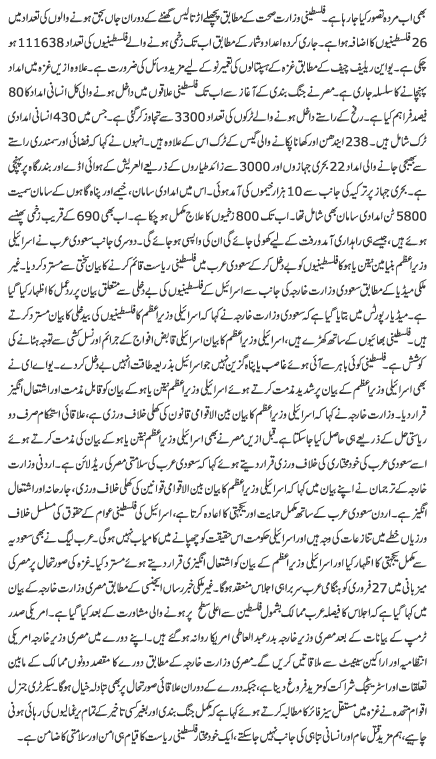 بھی اب مردہ تصور کیا جا رہا ہے۔ فلسطینی وزارت صحت کے مطابق پچھلے اڑتالیس گھنٹے کے دوران جاں بحق ہونے والوں کی تعداد میں
26 فلسطینیوں کا اضافہ ہوا ہے۔ جاری کردہ اعداد و شمار کے مطابق اب تک زخمی ہونے والے فلسطینیوں کی تعداد 111638 ہو
چکی ہے۔ یو این ریلیف چیف کے مطابق غزہ کے ہسپتالوں کی تعمیر نو کے لیے مزید وسائل کی ضرورت ہے۔ علاوہ ازیں غزہ میں امداد
پہنچانے کا سلسلہ جاری ہے۔ مصر نے جنگ بندی کے آغاز سے اب تک فلسطینی علاقوں میں داخل ہونے والی کل انسانی امداد کا 80
فیصد فراہم کیا ہے۔ رفح کے راستے داخل ہونے والے ٹرکوں کی تعداد 3300 سے تجاوز کر گئی ہے۔ جس میں 430 انسانی امدادی
ٹرک شامل ہیں۔ 238 ایندھن اور کھانا پکانے والی گیس کے ٹرک اس کے علاوہ ہیں۔ انہوں نے کہا کہ فضائی اور سمندری راستے
سے بھیجی جانے والی امداد 22 بحری جہازوں اور 3000 سے زائد طیاروں کے ذریعے العریش کے ہوائی اڈے اور بندرگاہ پر پہنچی
ہے۔ بحری جہاز پر ترکیہ کی جانب سے 10 ہزار خیموں کی آمد ہوئی۔ اس میں امدادی سامان، خیمے اور پناہ گاہوں کے سامان سمیت
5800 ٹن امدادی سامان بھی شامل تھا۔ اب تک 800 زخمیوں کا علاج مکمل ہو چکا ہے۔ اب بھی 690 کے قریب زخمی پھنسے
ہوئے ہیں، جیسے ہی راہداری آمد و رفت کے لیے کھولی جائے گی ان کی واپسی ہو جائے گی۔ دوسری جانب سعودی عرب نے اسرائیلی
وزیراعظم بنیامین نیتن یاہو کا فلسطینیوں کو بے دخل کر کے سعودی عرب میں فلسطینی ریاست قائم کرنے کا بیان سختی سے مسترد کر دیا۔ غیر ملکی
میڈیا کے مطابق سعودی وزارت خارجہ کی جانب سے اسرائیل کے فلسطینیوں کی بے دخلی سے متعلق بیان پر ردعمل کا اظہار کیا گیا
ہے۔ میڈیا رپورٹس میں بتایا گیا ہے کہ سعودی وزارت خارجہ نے کہا کہ اسرائیلی وزیراعظم کا فلسطینیوں کی بیدخلی کا بیان مسترد کرتے
ہیں۔ فلسطینی بھائیوں کے ساتھ کھڑے ہیں۔ اسرائیلی وزیراعظم کا بیان اسرائیلی قابض افواج کے جرائم اور نسل کشی سے توجہ ہٹانے کی
کوشش ہے۔ فلسطینی کوئی باہر سے آئی ہوئے غاصب یا پناہ گزین نہیں جو اسرائیل بذریعہ طاقت انہیں بے دخل کر دے۔ یو اے ای نے
بھی اسرائیلی وزیراعظم کے بیان پر شدید مذمت کرتے ہوئے اسرائیلی وزیراعظم نیتن یاہو کے بیان کو قابل مذمت اور اشتعال انگیز
قرار دیا۔ وزارت خارجہ نے کہا کہ اسرائیلی وزیراعظم کا بیان بین الاقوامی قانون کی کھلی خلاف ورزی ہے، علاقائی استحکام صرف دو
ریاستی حل کے ذریعے ہی حاصل کیا جاسکتا ہے۔ قبل ازیں مصر نے بھی اسرائیلی وزیراعظم نیتن یاہو کے بیان کی مذمت کرتے ہوئے
اسے سعودی عرب کی خودمختاری کی خلاف ورزی قرار دیتے ہوئے کہا کہ سعودی عرب کی سلامتی مصر کی ریڈ لائن ہے۔ اردنی وزارت
خارجہ کے ترجمان نے اپنے بیان میں کہا کہ اسرائیلی وزیراعظم کا بیان بین الاقوامی قوانین کی کھلی خلاف ورزی، جارحانہ اور اشتعال
انگیز ہے۔ اردن سعودی عرب کے ساتھ مکمل حمایت اور یکجہتی کا اعادہ کرتا ہے، اسرائیل کی فلسطینی عوام کے حقوق کی مسلسل خلاف
ورزیاں خطے میں تنازعات کی وجہ ہیں اور اسرائیلی حکومت اس حقیقت کو چھپانے میں کامیاب نہیں ہو سکتی۔ عرب لیگ نے بھی سعودیہ
سے مکمل یکجہتی کا اظہار کیا اور اسرائیلی وزیراعظم کے بیان کو اشتعال انگیزی قرار دیتے ہوئے مسترد کیا۔ غزہ کی صورتحال پر مصر کی
میزبانی میں 27 فروری کو ہنگامی عرب سربراہی اجلاس منعقد ہوگا۔ غیر ملکی خبر رساں ایجنسی کے مطابق مصری وزارت خارجہ کے بیان
میں کہا گیا ہے کہ اجلاس کا فیصلہ عرب ممالک بشمول فلسطین سے اعلیٰ سطح پر ہونے والی مشاورت کے بعد کیا گیا ہے۔ امریکی صدر
ٹرمپ کے بیانات کے بعد مصری وزیر خارجہ بدر عبدالعاطی امریکا روانہ ہو گئے ہیں۔ اپنے دورے میں مصری وزیر خارجہ امریکی
انتظامیہ اور اراکین سینیٹ سے ملاقاتیں کریں گے۔ مصری وزارت خارجہ کے مطابق دورے کا مقصد دونوں ممالک کے مابین
تعلقات اور اسٹریٹیجک شراکت کو مزید فروغ دینا ہے، جبکہ دورے کے دوران علاقائی صورتحال پر بھی تبادلہ خیال ہوگا۔ سیکرٹری جنرل
اقوام متحدہ نے غزہ میں مستقل سیز فائر کا مطالبہ کرتے ہوئے کہا ہے کہ مکمل جنگ بندی اور بغیر کسی تاخیر کے تمام یرغمالیوں کی رہائی ہونی
چاہیے، ہم مزید قتل عام اور انسانی تباہی کی جانب نہیں جاسکتے، ایک خودمختار فلسطینی ریاست کا قیام ہی امن اور سلامتی کا ضامن ہے۔